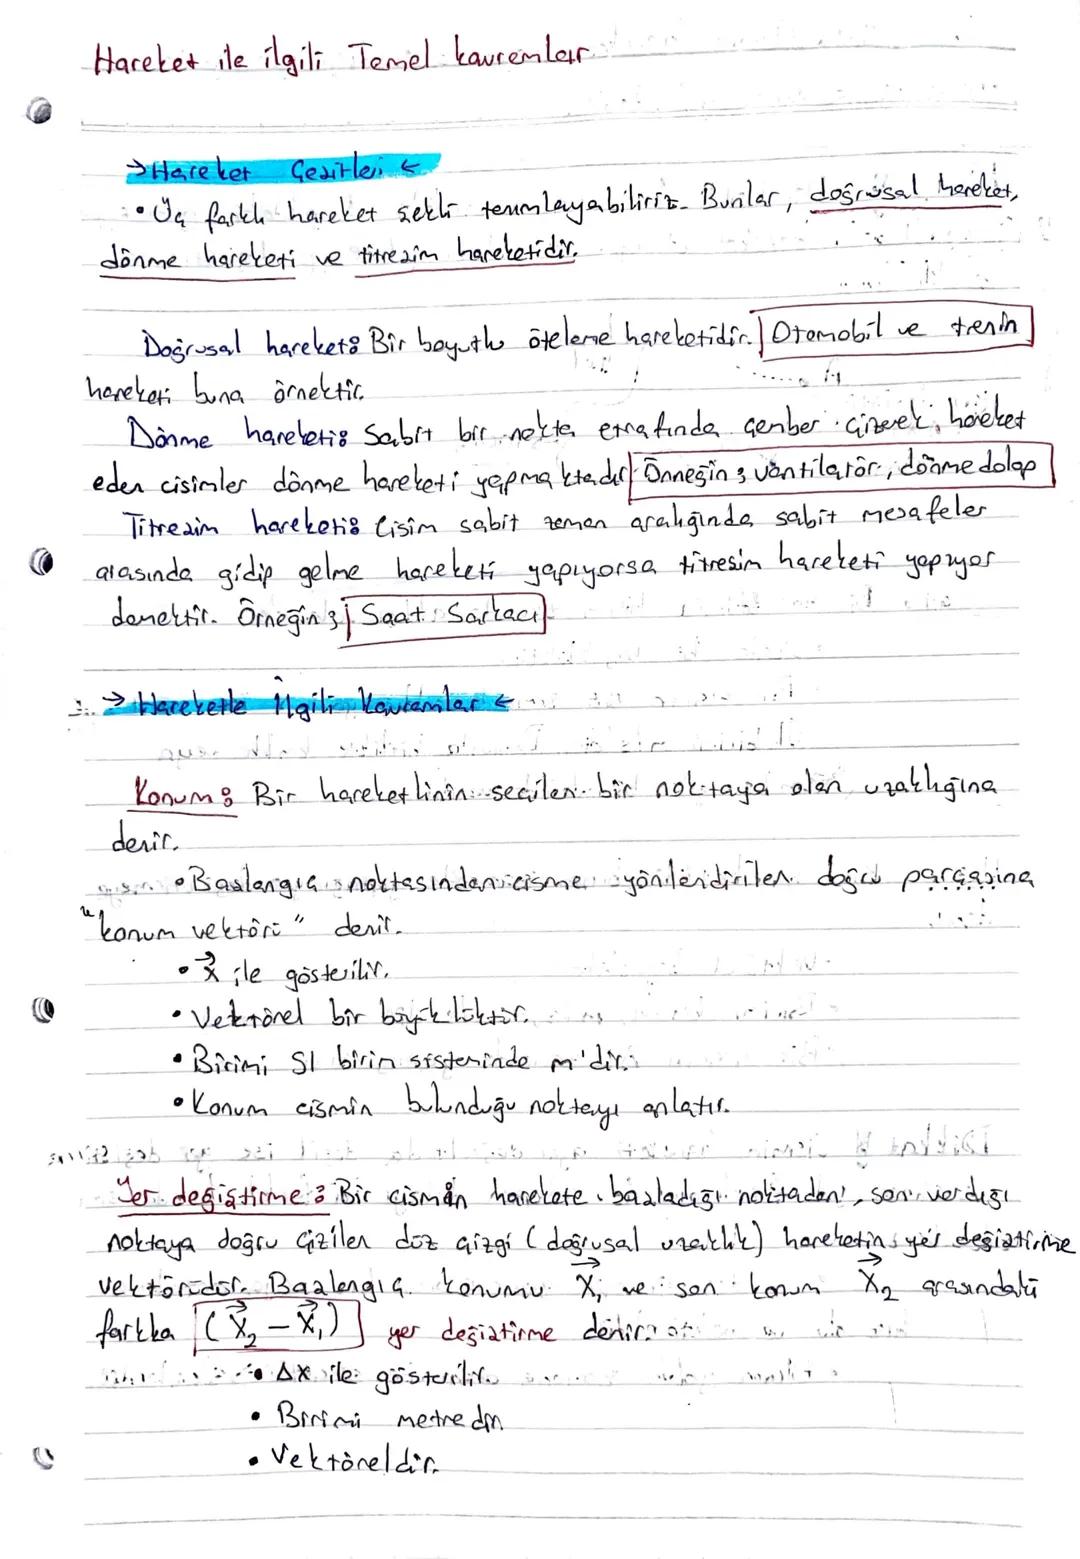 Hareket ile ilgili Temel kavramlar
→ Hareket Çeşitleri ←
• Üç farklı hareket şekli tanımlayabiliriz. Bunlar, doğrusal hareket,
dönme hareketi ve titreşim hareketidir.
Doğrusal hareket: Bir boyutlu öteleme hareketidir. Otomobil ve trenin
hareketi buna örnektir.
Dönme hareketi: Sabit bir nokta etrafında çember çizerek hareket
eden cisimler dönme hareketi yapmaktadır. Örneğin; vantilatör, dönme dolap
Titreşim hareketi: Cisim sabit zaman aralığında sabit mesafeler
arasında gidip gelme hareketi yapıyorsa titreşim hareketi yapıyor
demektir. Örneğin; Saat Sarkacı
→ Hareketle İlgili Kavramlar ←
Konum: Bir hareketlinin seçilen bir noktaya olan uzaklığına
denir.
• Başlangıç noktasından cisme yönlendirilen doğru parçasına
"konum vektörü" denir.
• x⃗ ile gösterilir.
• Vektörel bir büyüklüktür.
• Birimi SI birim sisteminde m'dir.
• Konum cismin bulunduğu noktayı anlatır.
Yer değiştirme: Bir cismin harekete başladığı noktadan, son verdiği
noktaya doğru çizilen düz çizgi (doğrusal uzaklık) hareketin yer değiştirme
vektörüdür. Başlangıç konumu X⃗₁ ve son konum X⃗₂ arasındaki
farkka (X⃗₂ - X⃗₁) yer değiştirme denir.
• Δx ile gösterilir.
• Birimi metredir
• Vektöreldir.